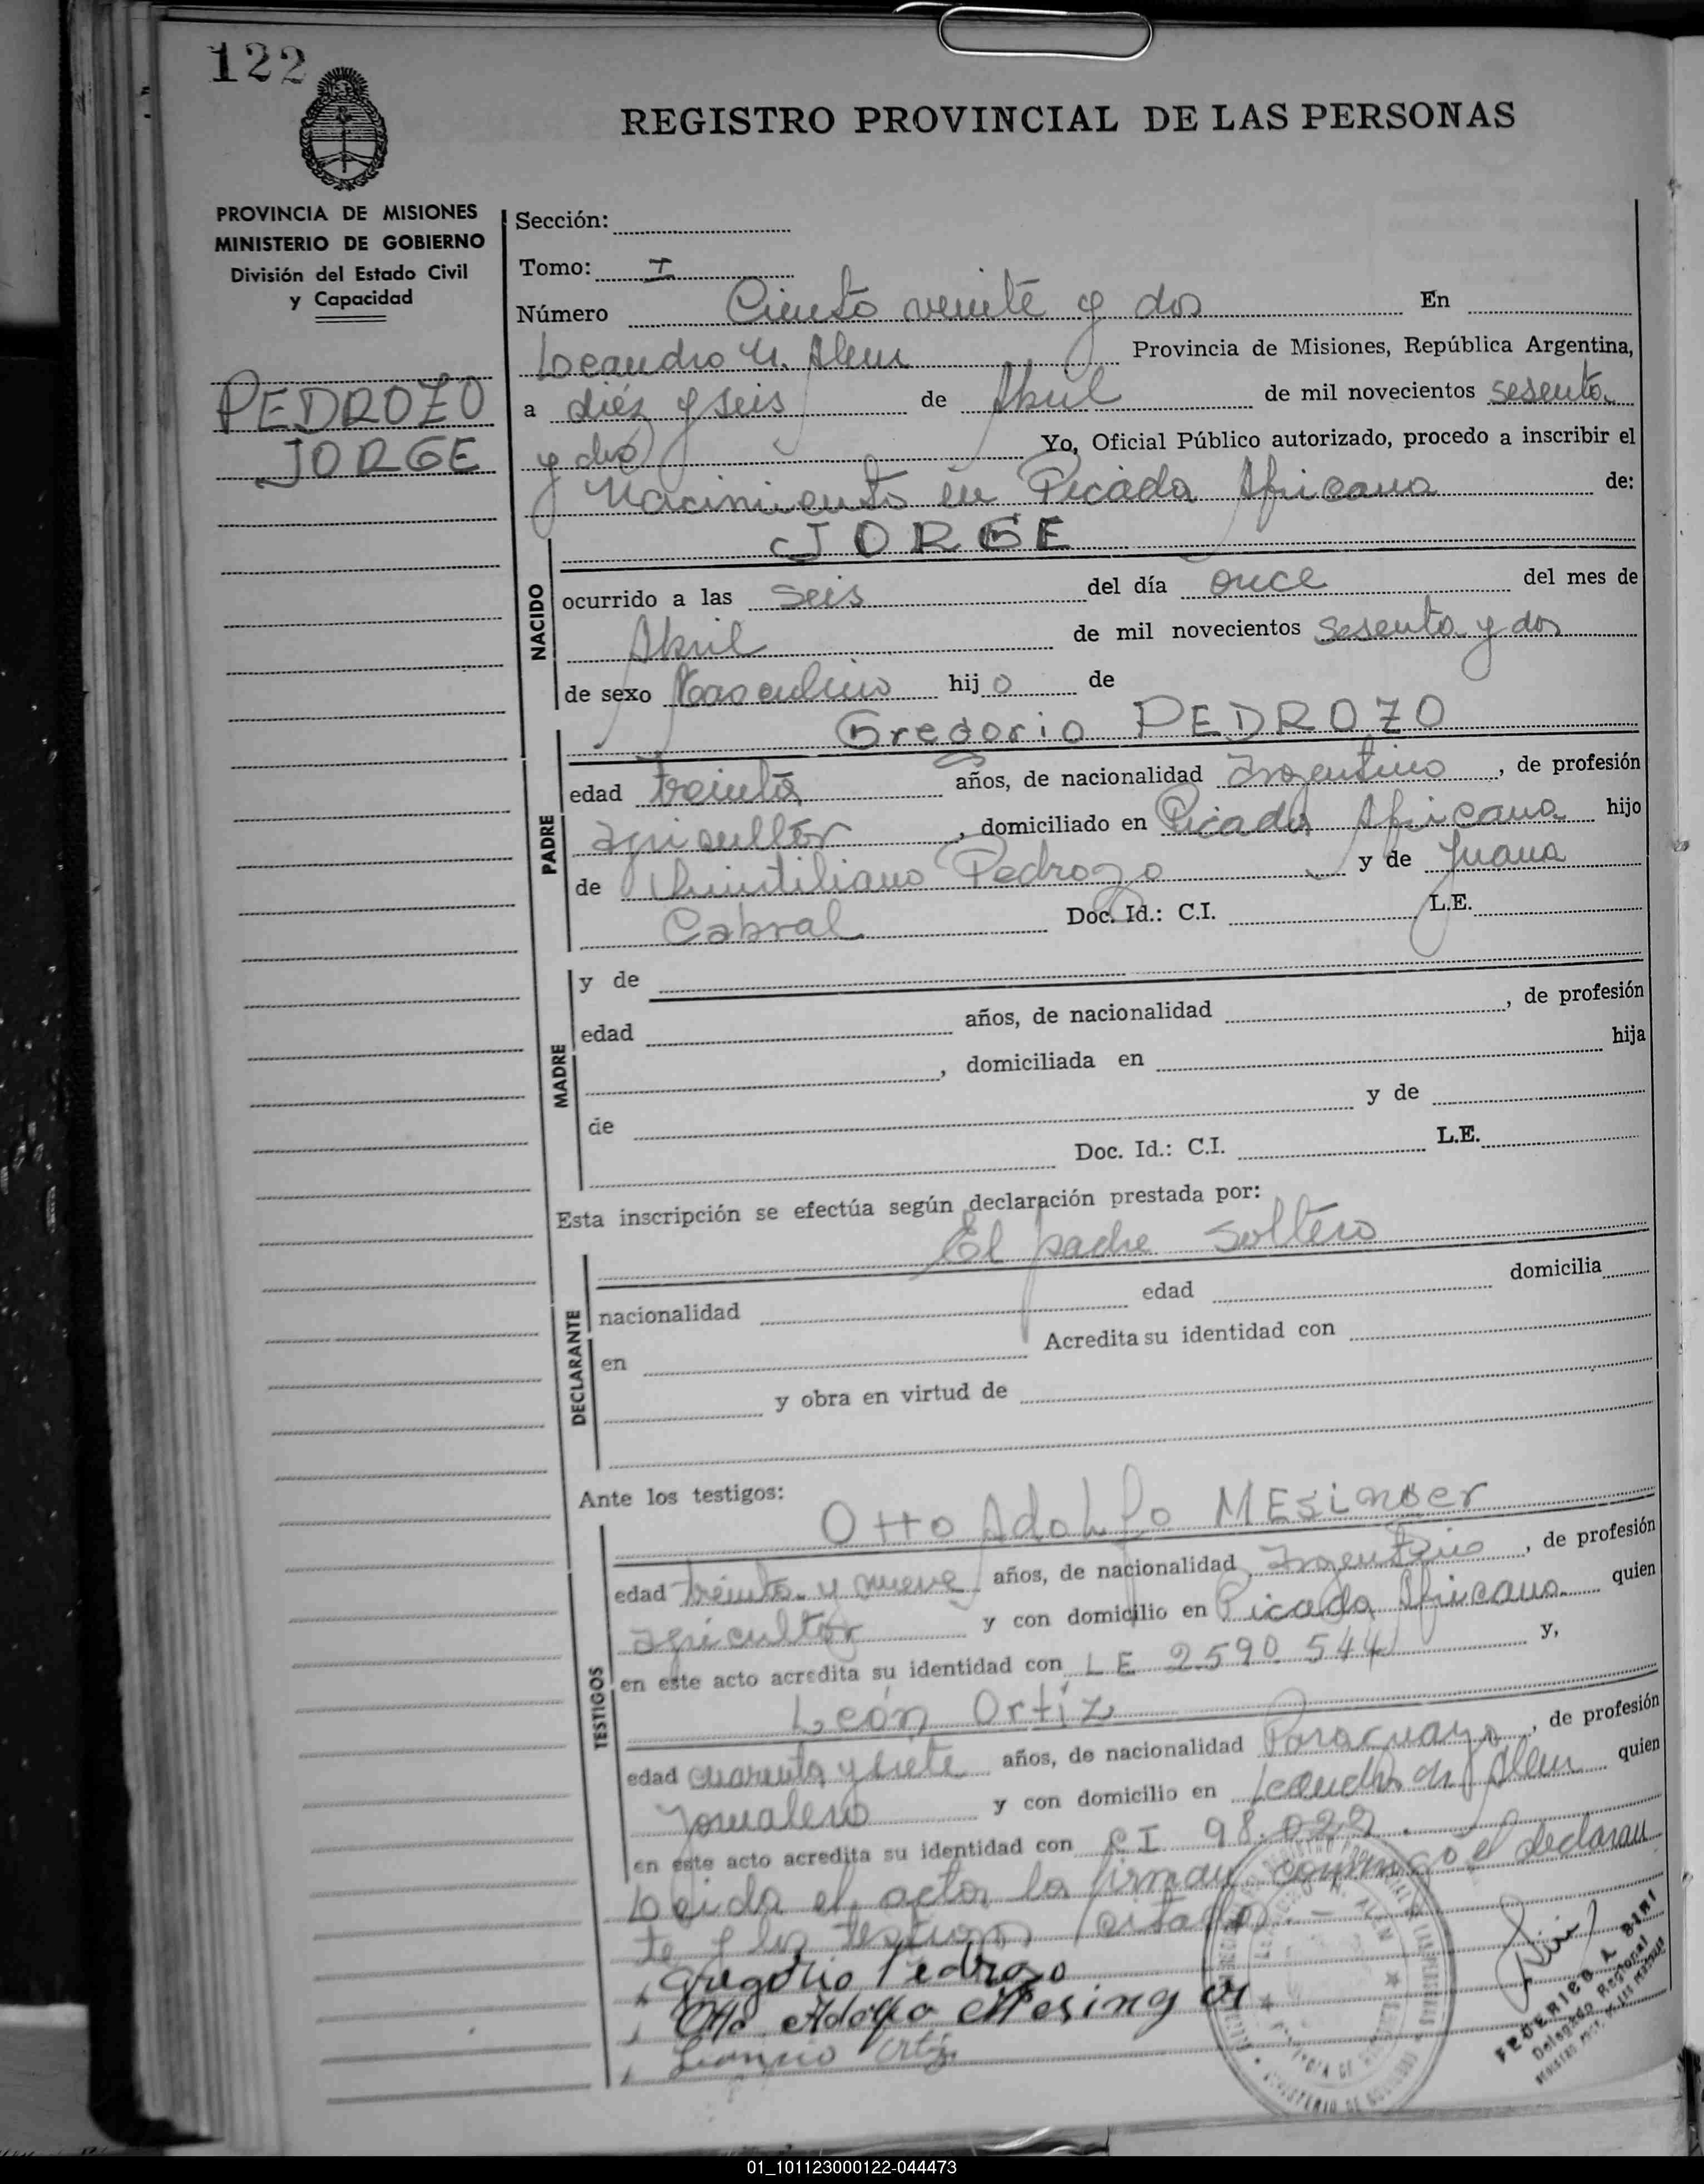 122
REGISTRO PROVINCIAL DE LAS PERSONAS
PROVINCIA DE MISIONES
MINISTERIO DE GOBIERNO
División del Estado Civil
y Capacidad
PEDROZO
JORGE
Sección:
Tomo: I
Número Ciento veinte y dos En
Leandro N. Alem Provincia de Misiones, República Argentina,
a diéz y seis de Abril de mil novecientos sesenta
y dos Yo, Oficial Público autorizado, procedo a inscribir el
Nacimiento en Picada Africana de:
JORGE
NACIDO
ocurrido a las seis del día once del mes de
Abril de mil novecientos sesenta y dos
de sexo Masculino hijo de
Gregorio PEDROZO
PADRE
edad treinta años, de nacionalidad Argentino, de profesión
agricultor, domiciliado en Picada Africana hijo
de Quintiliano Pedrozo y de Juana
Cabral Doc. Id.: C.I. L.E.
MADRE
y de
edad años, de nacionalidad , de profesión
, domiciliada en hija
de y de
Doc. Id.: C.I. L.E.
Esta inscripción se efectúa según declaración prestada por:
El padre soltero
DECLARANTE
nacionalidad edad domicilia
en Acredita su identidad con
y obra en virtud de
Ante los testigos:
Otto Adolfo MEsinger
TESTIGOS
edad treinta y nueve años, de nacionalidad Argentino, de profesión
agricultor y con domicilio en Picada Africana quien
en este acto acredita su identidad con LE 2590544 y,
León Ortiz
edad cuarenta y siete años, de nacionalidad Paraguayo, de profesión
Jornalero y con domicilio en Leandro N. Alem quien
en este acto acredita su identidad con CI 98.022.
Leida el acta la firman conmigo el declaran
te y los testigos citados.-
Gregorio Pedrozo
Otto Adolfo Mesinger
Ortiz
FEDERICO A. BINI
Delegado Regional
01_101123000122-044473